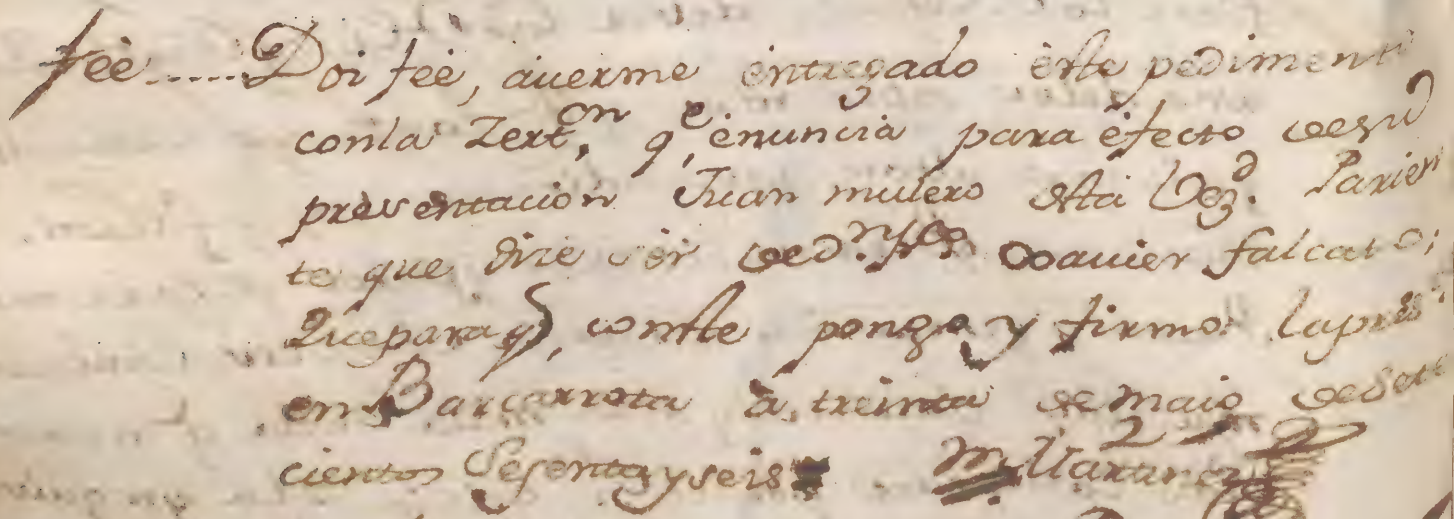 feè Doi feè, auerme èntregado èste pediment
conla Zert.on q.e ènuncia para èfecto de su
presentacion Juan mulero desta Vez.d Parien
te que dize sèr de d.n Xavier falcato;
Quepara q.e conste pongo y firmo la pres.te
en Barcarrota à treinta de maio de sete
cientos Sesenta y seis Martinez